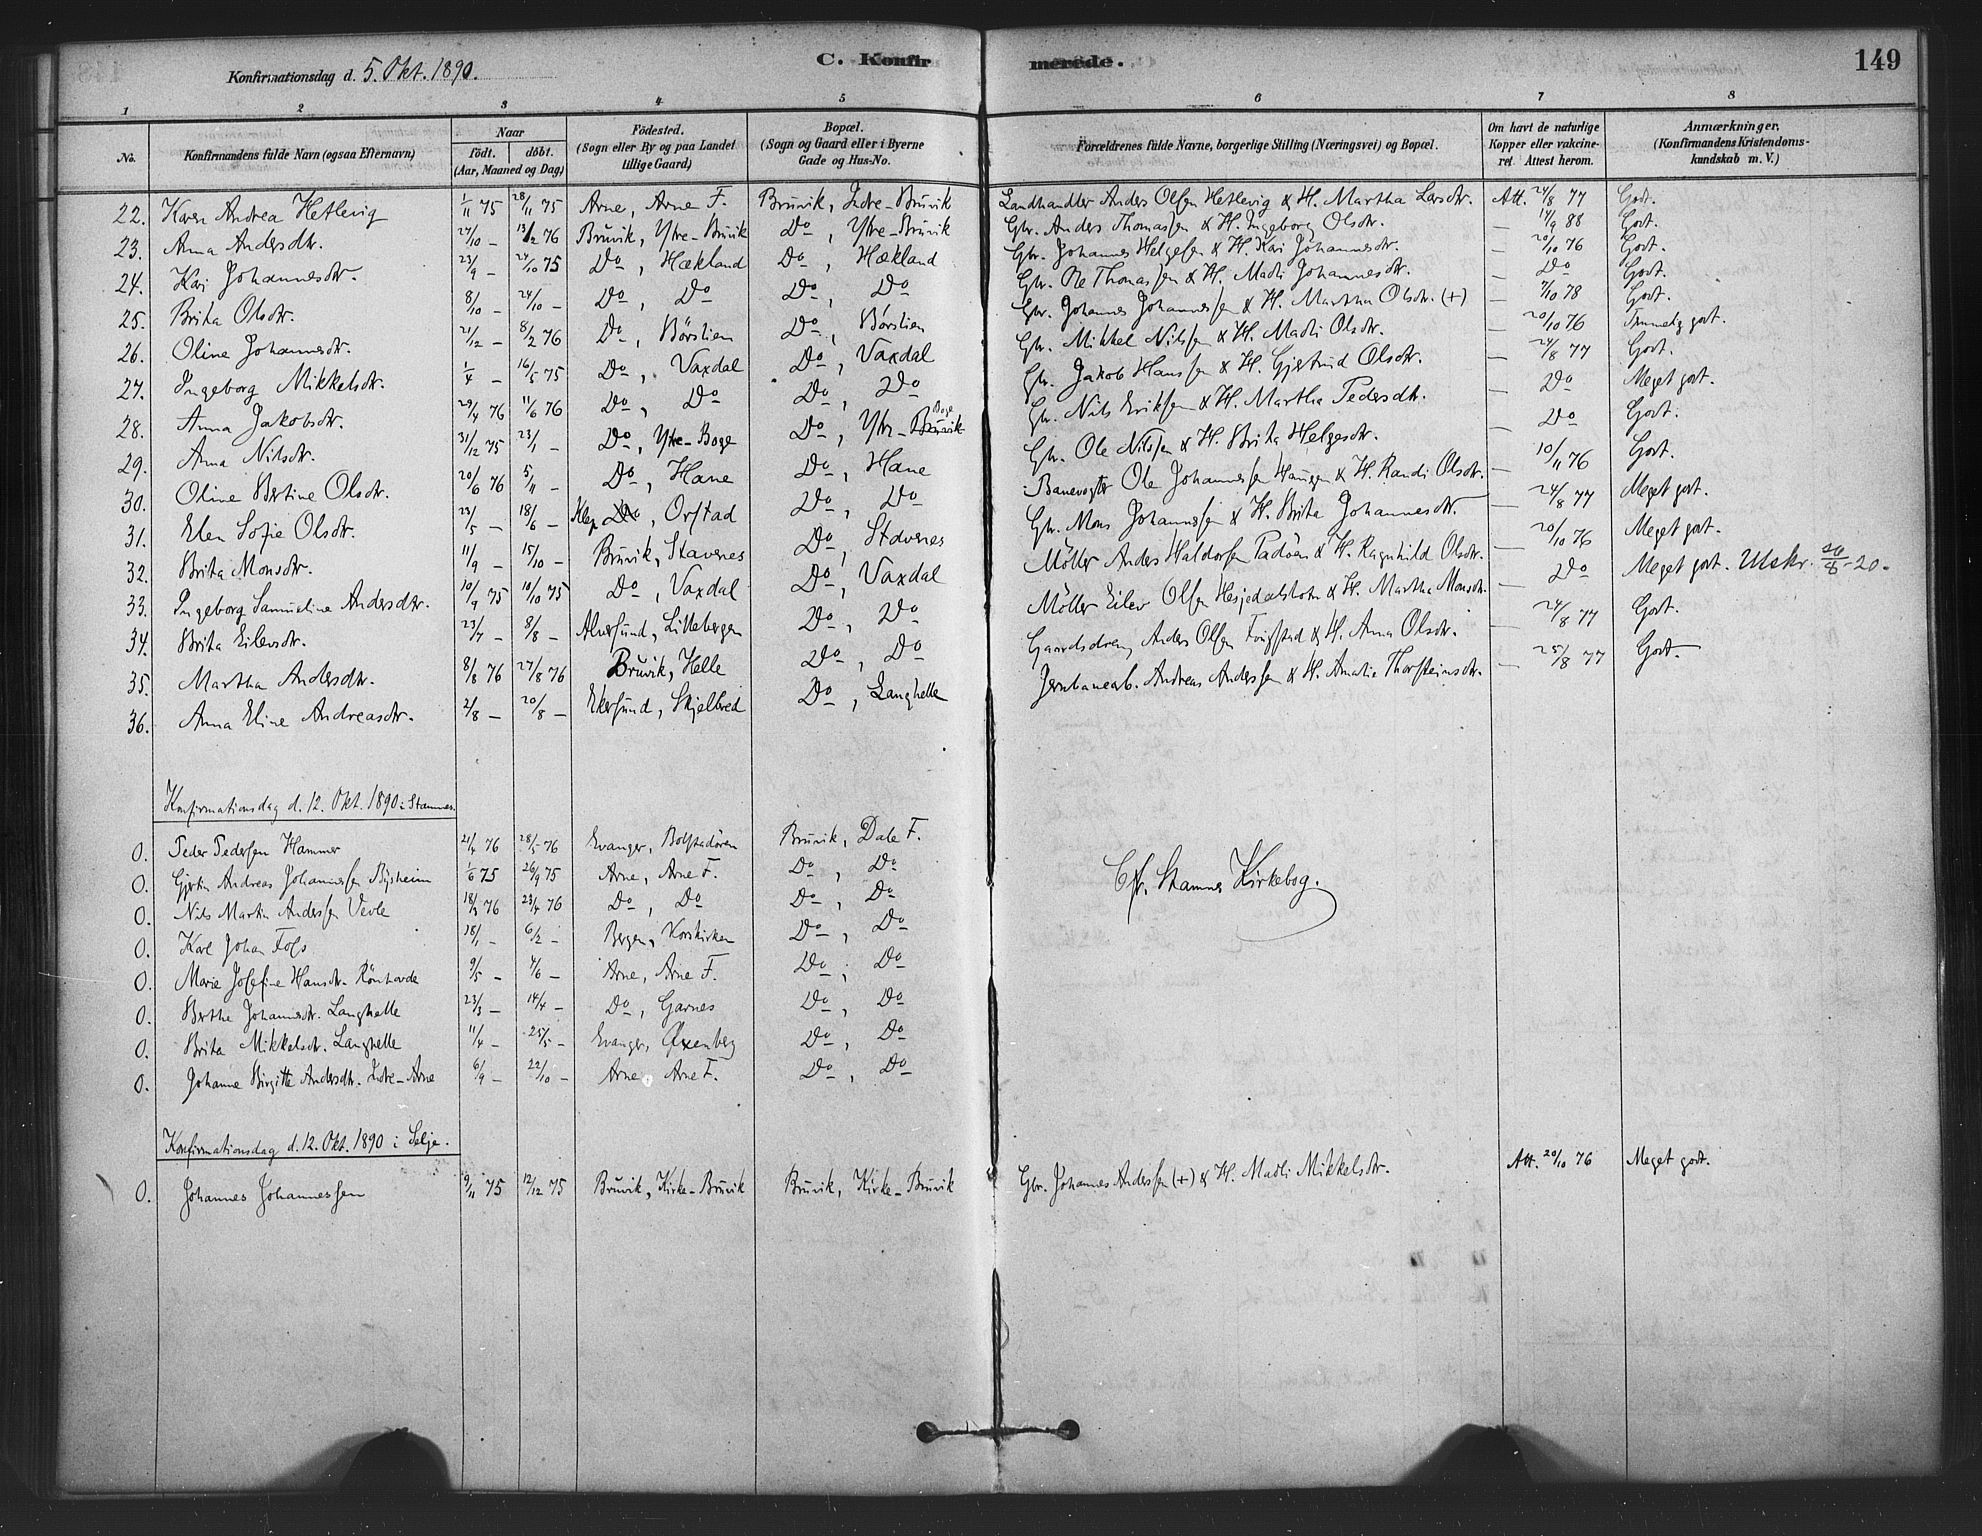 Konfirmationsdag d. 5. Okt. 1890.
C. Konfirmerede.
149
1 2 3 4 5 6 7 8
No.
Konfirmandens fulde Navn (ogsaa Efternavn)
Naar
født. døbt.
(Aar, Maaned og Dag)
Födested.
(Sogn eller By og paa Landet tillige Gaard)
Bopæl.
(Sogn og Gaard eller i Byerne Gade og Hus-No.
Forældrenes fulde Navne, borgerlige Stilling (Næringsvei) og Bopæl.
Om havt de naturlige Kopper eller vakcineret. Attest herom.
Anmærkninger.
(Konfirmandens Kristendomskundskab m. V.)
22. Karen Andrea Hetlevig 1/11 75 28/11 75 Arne, Arne F. Bruvik, Indre-Bruvik Landhandler Anders Olsen Hetlevig & H. Martha Larsdtr. Att. 24/8 77 Godt.
23. Anna Andersdtr. 27/10 – 13/2 76 Bruvik, Ytre-Bruvik Do, Ytre-Bruvik Gbr. Anders Thomassen & H. Ingeborg Olsdtr. – 14/9 88 Godt.
24. Kari Johannesdtr. 23/9 – 24/10 75 Do, Hækland Do, Hækland Gbr. Johannes Helgesen & H. Kari Johannesdtr. – 20/10 76 Godt.
25. Brita Olsdtr. 8/10 – 24/10 – Do, Do Do, Do Gbr. Ole Thomassen & H. Madli Johannesdtr. – Do Godt.
26. Oline Johannesdtr. 21/12 – 8/2 76 Do, Börstien Do, Börstien Gbr. Johannes Johannessen & H. Martha Olsdtr. (+) – 7/10 78 Godt.
27. Ingeborg Mikkelsdtr. 1/4 – 16/5 75 Do, Vaxdal Do, Vaxdal Gbr. Mikkel Nilssen & H. Madli Olsdtr. – 20/10 76 Temmelig godt.
28. Anna Jakobsdtr. 29/4 76 11/6 76 Do, Do Do, Do Gbr. Jakob Hanssen & H. Gjertrud Olsdtr. – 24/8 77 Godt.
29. Anna Nilsdtr. 31/12 75 23/1 – Do, Ytre-Boge Do, Ytre-Bruvik Boge Gbr. Nils Eriksen & H. Martha Pedersdtr. – Do Meget godt.
30. Oline Bertine Olsdtr. 20/6 76 5/11 – Do, Hane Do, Hane Gbr. Ole Nilssen & H. Brita Helgesdtr. – Do Godt.
31. Elen Sofie Olsdtr. 23/5 – 18/6 – Klep Do, Orstad Do, Do Banevogter Ole Johannessen Haugen & H. Randi Olsdtr. – 10/11 76 Godt.
32. Brita Monsdtr. 11/9 – 15/10 – Bruvik, Stavenes Do, Stavenes Gbr. Mons Johannessen & H. Brita Johannesdtr. – 24/8 77 Meget godt.
33. Ingeborg Samueline Andersdtr. 10/9 75 10/10 75 Do, Vaxdal Do, Vaxdal Möller Anders Haldorsen & H. Ragnhild Olsdtr. – 20/10 76 Meget godt.
34. Brita Eilevsdtr. 23/7 – 8/8 – Alversund, Littebergen Do, Do Möller Eilev Olsen Hesjedalstotn & H. Martha Monsdtr. – Do Meget godt. Utskr. 20/8 – 20.
35. Martha Andersdtr. 8/8 76 27/8 76 Bruvik, Helle Do, Do Gaardsdreng Anders Olsen & H. Anna Olsdtr. – 24/8 77 Godt.
36. Anna Eline Andreasdtr. 2/8 – 20/8 – Ekersund, Skjelbred Do, Langhelle Jernbanearb. Andreas Anderssen & H. Amalie Thorsteinsdtr. – 25/8 77 Godt.
Konfirmationsdag d. 12. Okt. 1890 i Stamnes.
0. Peder Pedersen Hammer 21/4 76 28/5 76 Evanger, Bolstadören Bruvik, Dale F.
0. Gjertin Andreas Johannessen Bysheim 1/6 75 26/9 75 Arne, Arne F. Do, Do
Cfr. Stamnes Kirkebog.
0. Nils Martin Anderssen Vevle 18/3 76 23/4 76 Do, Do Do, Do
0. Karl Johan Foss 18/1 – 6/2 – Bergen, Korskirken Do, Do
0. Marie Josefine Hansdtr. Rönhovde 9/5 – 4/6 – Arne, Arne F. Do, Do
0. Berthe Johannesdtr. Langhelle 23/3 – 14/4 – Do, Garnes Do, Do
0. Brita Mikkelsdtr. Langhelle 11/4 – 25/5 – Evanger, Öxenberg Do, Do
0. Johanne Birgitte Andersdtr. Indre-Arne 6/9 – 22/10 – Arne, Arne F. Do, Do
Konfirmationsdag d. 12. Okt. 1890 i Selje.
0. Johannes Johannessen 9/11 75 12/12 75 Bruvik, Kirke-Bruvik Bruvik, Kirke-Bruvik Gbr. Johannes Anderssen (+) & H. Madli Mikkelsdtr. Att. 20/10 76 Meget godt.